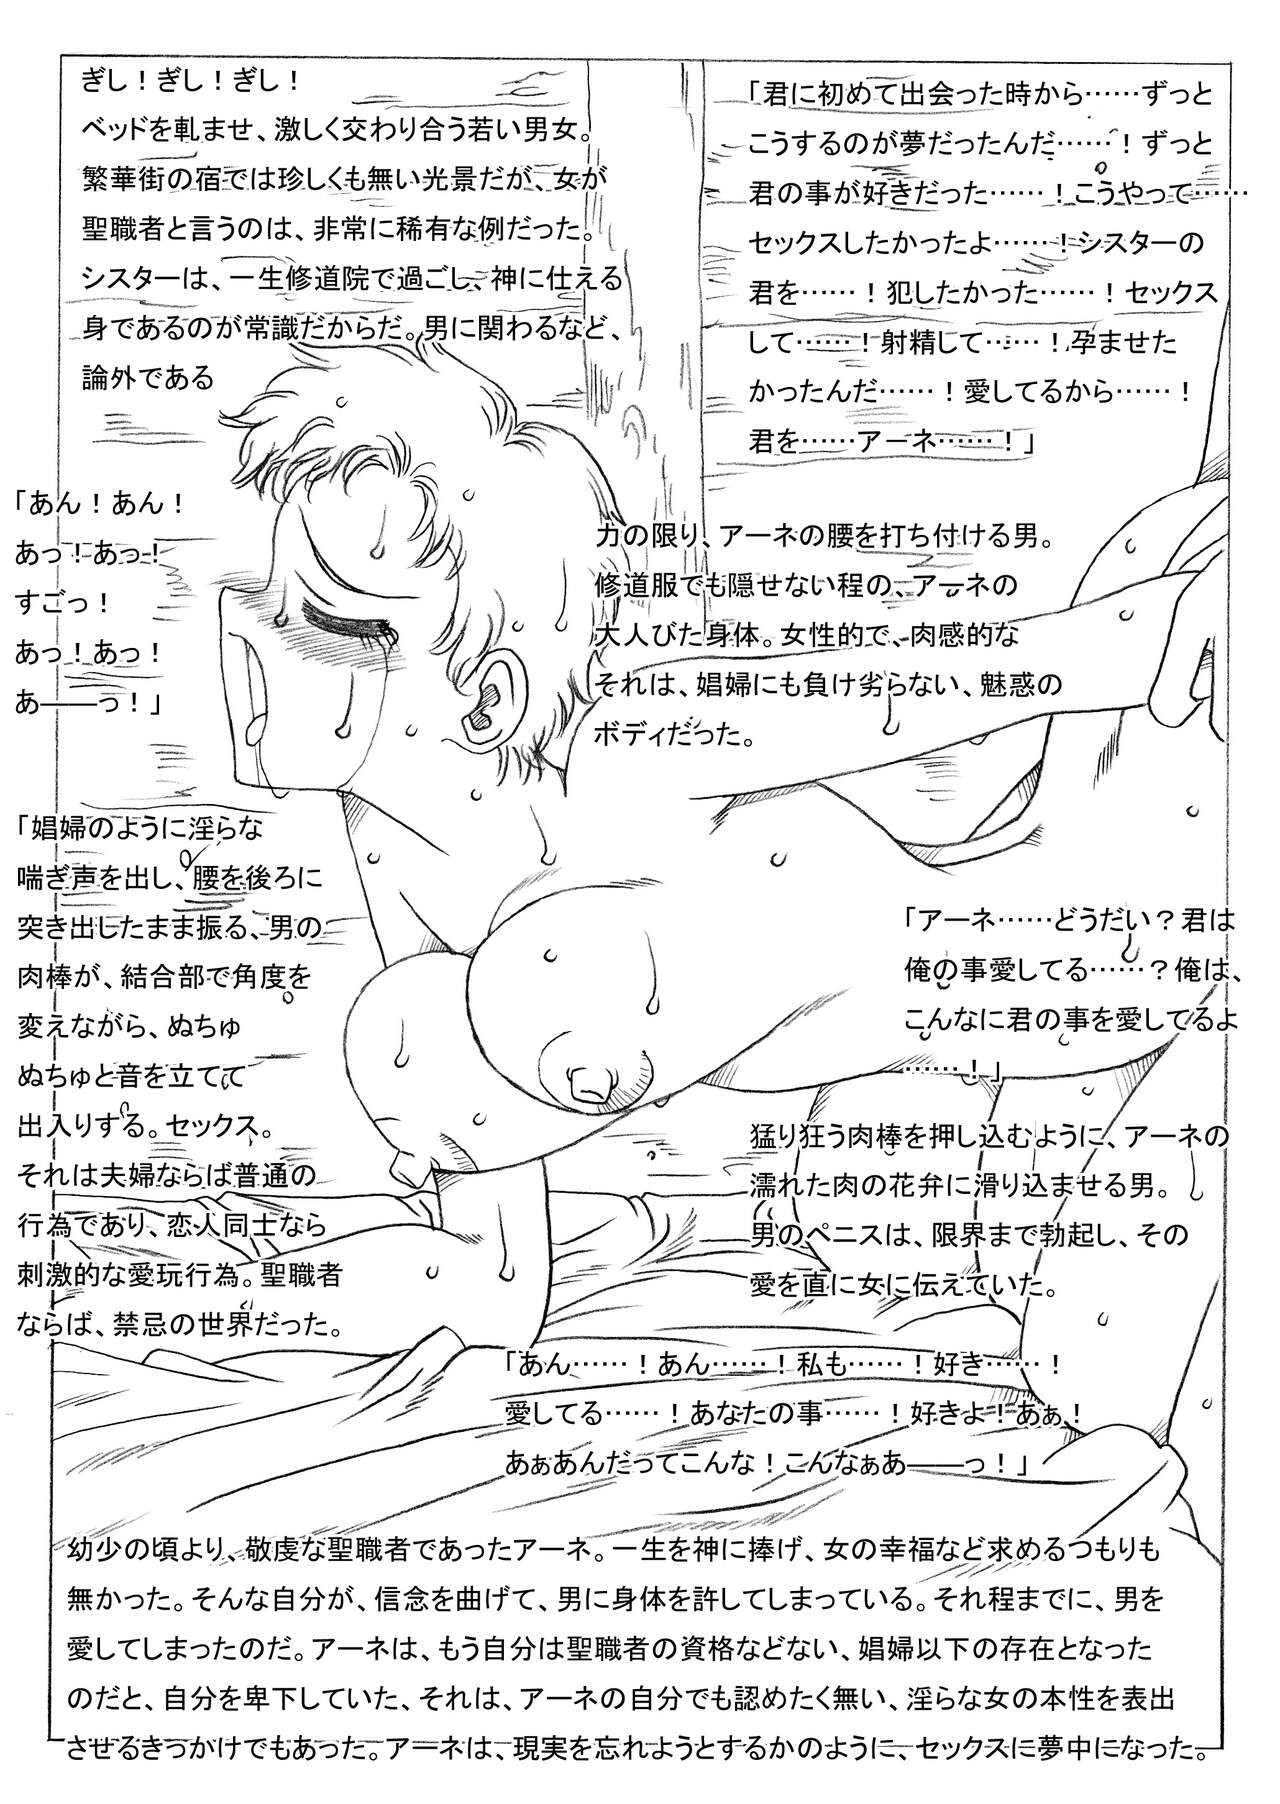 ぎし！ぎし！ぎし！
ベッドを軋ませ、激しく交わり合う若い男女。
繁華街の宿では珍しくも無い光景だが、女が
聖職者と言うのは、非常に稀有な例だった。
シスターは、一生修道院で過ごし、神に仕える
身であるのが常識だからだ。男に関わるなど、
論外である
「君に初めて出会った時から……ずっと
こうするのが夢だったんだ……！ずっと
君の事が好きだった……！こうやって……
セックスしたかったよ……！シスターの
君を……！犯したかった……！セックス
して……！射精して……！孕ませた
かったんだ……！愛してるから……！
君を……アーネ……！」
「あん！あん！
あっ！あっ！
すごっ！
あっ！あっ！
あ――っ！」
力の限り、アーネの腰を打ち付ける男。
修道服でも隠せない程の、アーネの
大人びた身体。女性的で、肉感的な
それは、娼婦にも負け劣らない、魅惑の
ボディだった。
「娼婦のように淫らな
喘ぎ声を出し、腰を後ろに
突き出したまま振る、男の
肉棒が、結合部で角度を
変えながら、ぬちゅ
ぬちゅと音を立てて
出入りする。セックス。
それは夫婦ならば普通の
行為であり、恋人同士なら
刺激的な愛玩行為。聖職者
ならば、禁忌の世界だった。
「アーネ……どうだい？君は
俺の事愛してる……？俺は、
こんなに君の事を愛してるよ
……！」
猛り狂う肉棒を押し込むように、アーネの
濡れた肉の花弁に滑り込ませる男。
男のペニスは、限界まで勃起し、その
愛を直に女に伝えていた。
「あん……！あん……！私も……！好き……！
愛してる……！あなたの事……！好きよ！あぁ！
あぁあんだってこんな！こんなぁあ――っ！」
幼少の頃より、敬虔な聖職者であったアーネ。一生を神に捧げ、女の幸福など求めるつもりも
無かった。そんな自分が、信念を曲げて、男に身体を許してしまっている。それ程までに、男を
愛してしまったのだ。アーネは、もう自分は聖職者の資格などない、娼婦以下の存在となった
のだと、自分を卑下していた、それは、アーネの自分でも認めたく無い、淫らな女の本性を表出
させるきっかけでもあった。アーネは、現実を忘れようとするかのように、セックスに夢中になった。